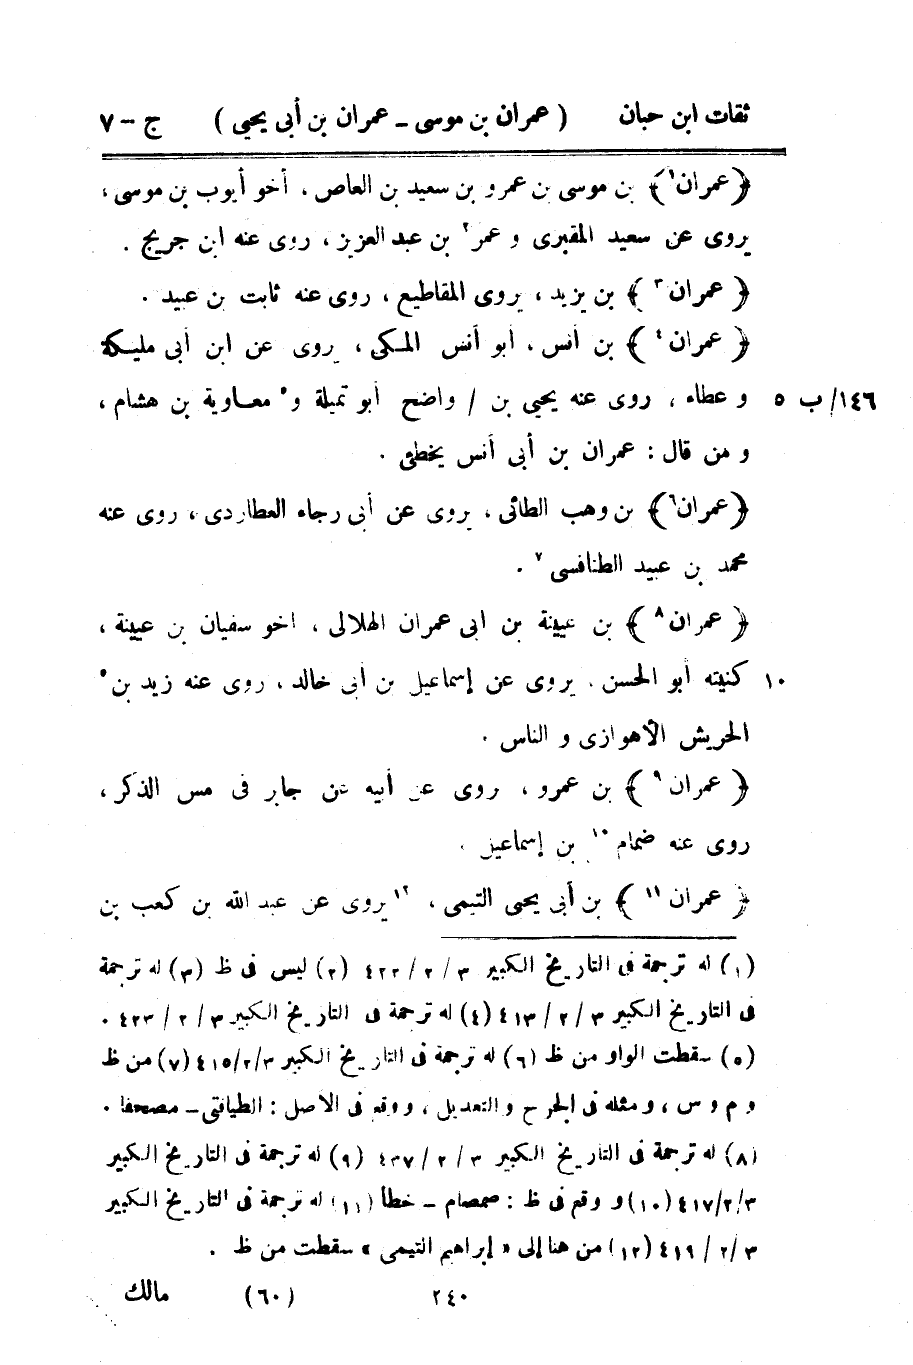 ثقات ابن حبان ( عمران بن موسى ـ عمران بن أبى يحيى ) ج – ٧
﴿عمران١﴾ بن موسى بن عمرو بن سعيد بن العاص ، أخو أيوب بن موسى ،
يروى عن سعيد المقبرى و عمر٢ بن عبد العزيز ، روى عنه ابن جريج .
﴿ عمران٣ ﴾ بن يزيد ، يروى المقاطيع ، روى عنه ثابت بن عبيد .
﴿ عمران٤ ﴾ بن أنس ، أبو أنس المكى ، يروى عن ابن أبى مليكة
١٤٦/ب ٥ و عطاء ، روى عنه يحيى بن / واضح أبو تميلة و٥ معاوية بن هشام ،
و من قال : عمران بن أبى أنس يخطئ .
﴿عمران٦﴾ بن وهب الطائى ، يروى عن أبى رجاء العطاردى ، روى عنه
محمد بن عبيد الطنافسى٧ .
﴿ عمران٨ ﴾ بن عيينة بن ابى عمران الهلالى ، اخو سفيان بن عيينة ،
١٠ كنيته أبو الحسن ، يروى عن إسماعيل بن أبى خالد ، روى عنه زيد بن
الحريش الأهوازى و الناس .
﴿ عمران٩ ﴾ بن عمرو ، يروى عن أبيه عن جابر فى مس الذكر ،
روى عنه ضمام١٠ بن إسماعيل .
﴿ عمران١١ ﴾ بن أبى يحيى التيمى ، ١٢يروى عن عبد الله بن كعب بن
(١) له ترجمة فى التاريخ الكبير ٣ / ٢ / ٤٢٢ (٢) ليس فى ظ (٣) له ترجمة
فى التاريخ الكبير ٣ / ٢ / ٤١٣ (٤) له ترجمة فى التاريخ الكبير ٣ / ٢ / ٤٢٣ .
(٥) سقطت الواو من ظ (٦) له ترجمة فى التاريخ الكبير ٣/٢/٤١٥ (٧) من ظ
و م و س ، و مثله فى الجرح و التعديل ، و وقع فى الاصل : الطيافتى ـ مصحفا .
(٨) له ترجمة فى التاريخ الكبير ٣ / ٢ / ٤٣٧ (٩) له ترجمة فى التاريخ الكبير
٣/٢/٤١٧ (١٠) و وقع فى ظ : صمصام ـ خطأ (١١) له ترجمة فى التاريخ الكبير
٣/ ٢ / ٤١٩ (١٢) من هنا إلى « إبراهيم التيمى » سقطت من ظ .
٢٤٠ (٦٠) مالك